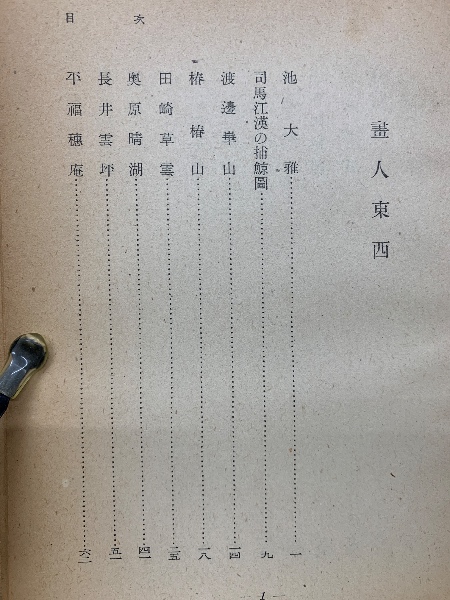 目次
畫人東西
池大雅 一
司馬江漢の捕鯨圖 九
渡邊崋山 一四
椿椿山 一八
田崎草雲 二五
奥原晴湖 四一
長井雲坪 五一
平福穗庵 六一